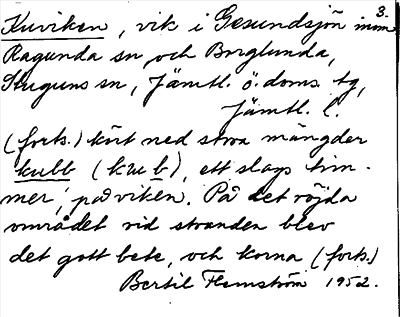 3.
Kuviken, vik i Gesundsjön inom
Ragunda sn och Borglunda,
Stuguns sn, Jämtl. ö. doms. tg,
Jämtl. l.
(forts.) kört ned stora mängder
kubb (kub), ett slags tim-
mer, på viken. På det röjda
området vid stranden blev
det gott bete, och korna (forts.)
Bertil Flemström 1952.